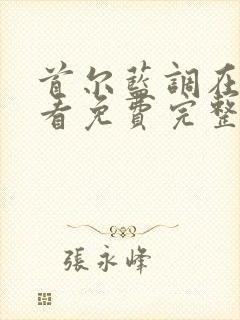 首尔藍調在
看免費完整
張永峰